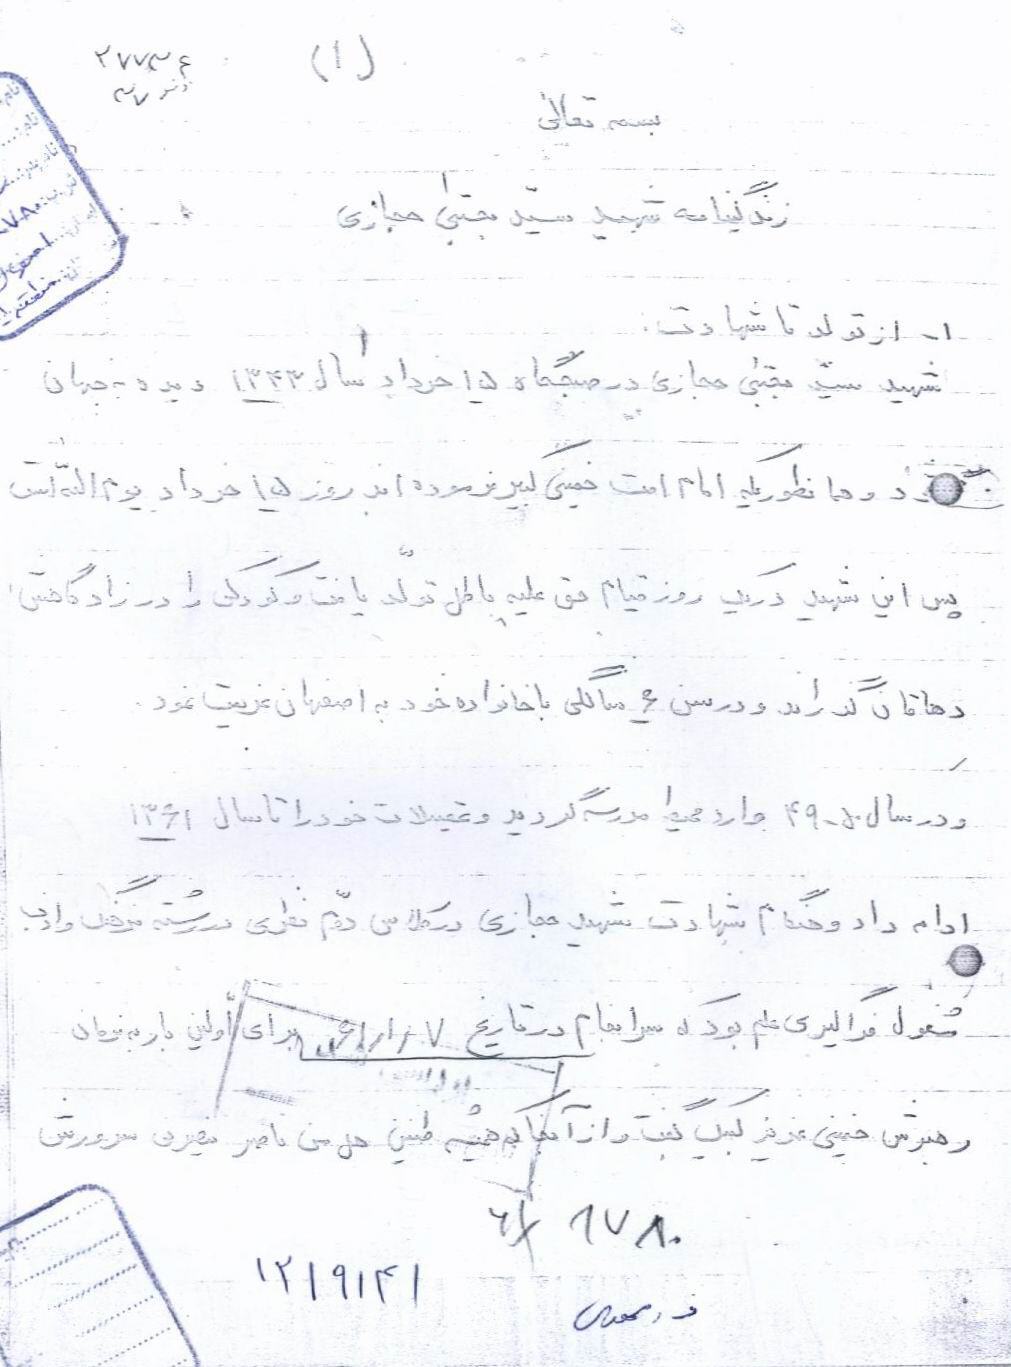 (۱)
۲۷۷۳۶
بسمه تعالی
زندگینامه شهید سیّد مجتبیٰ حجازی
۱- از تولد تا شهادت:
شهید سیّد مجتبیٰ حجازی در صبحگاه ۱۵ خرداد سال ۱۳۴۳ دیده به جهان
گشود و همانطوریکه امام امت خمینی کبیر فرموده اند روز ۱۵ خرداد یوم اللّه است
پس این شهید در یک روز قیام حق علیه باطل تولّد یافت و کودکی را در زادگاهش
دهاقان گذراند و در سن ۶ سالگی با خانواده خود به اصفهان عزیمت نمود.
و در سال ۵۰-۴۹ وارد محیط مدرسه گردید و تحصیلات خود را تا سال ۱۳۶۱
ادامه داد و هنگام شهادت شهید حجازی در کلاس دوّم نظری در رشته فرهنگ و ادب
مشغول فراگیری علم بود که سرانجام در تاریخ برای اولین بار به فرمان
رهبرش خمینی عزیز لبیک گفت و از آنجا که همیشه طنین هل من ناصر ینصرنی سرورش
۶۱ ۹۷۸۰
۱۲/۹/۴۱